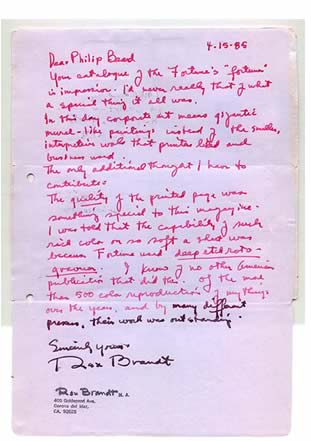 4-15-85
Dear Philip Beard
Your catalogue of the Fortune's "fortune"
is impressive. I'd never really thot of what
a special thing it all was.
In this day corporate art means gigantic
mural-like paintings instead of the smaller,
interpretive works that printer liked and
business used.
The only additional thought I have to
contribute:
The quality of the printed page was
something special to this magazine.
I was told that the capability of such
rich color on so soft a sheet was
because Fortune used deep etch roto-
gravure. I know of no other American
publication that did this. Of the more
than 500 color reproductions of my things
over the years, and by many different
presses, their work was outstanding.
Sincerely yours
Rex Brandt
Rex Brandt N.A.
405 Goldenrod Ave.
Corona del Mar,
CA. 92625